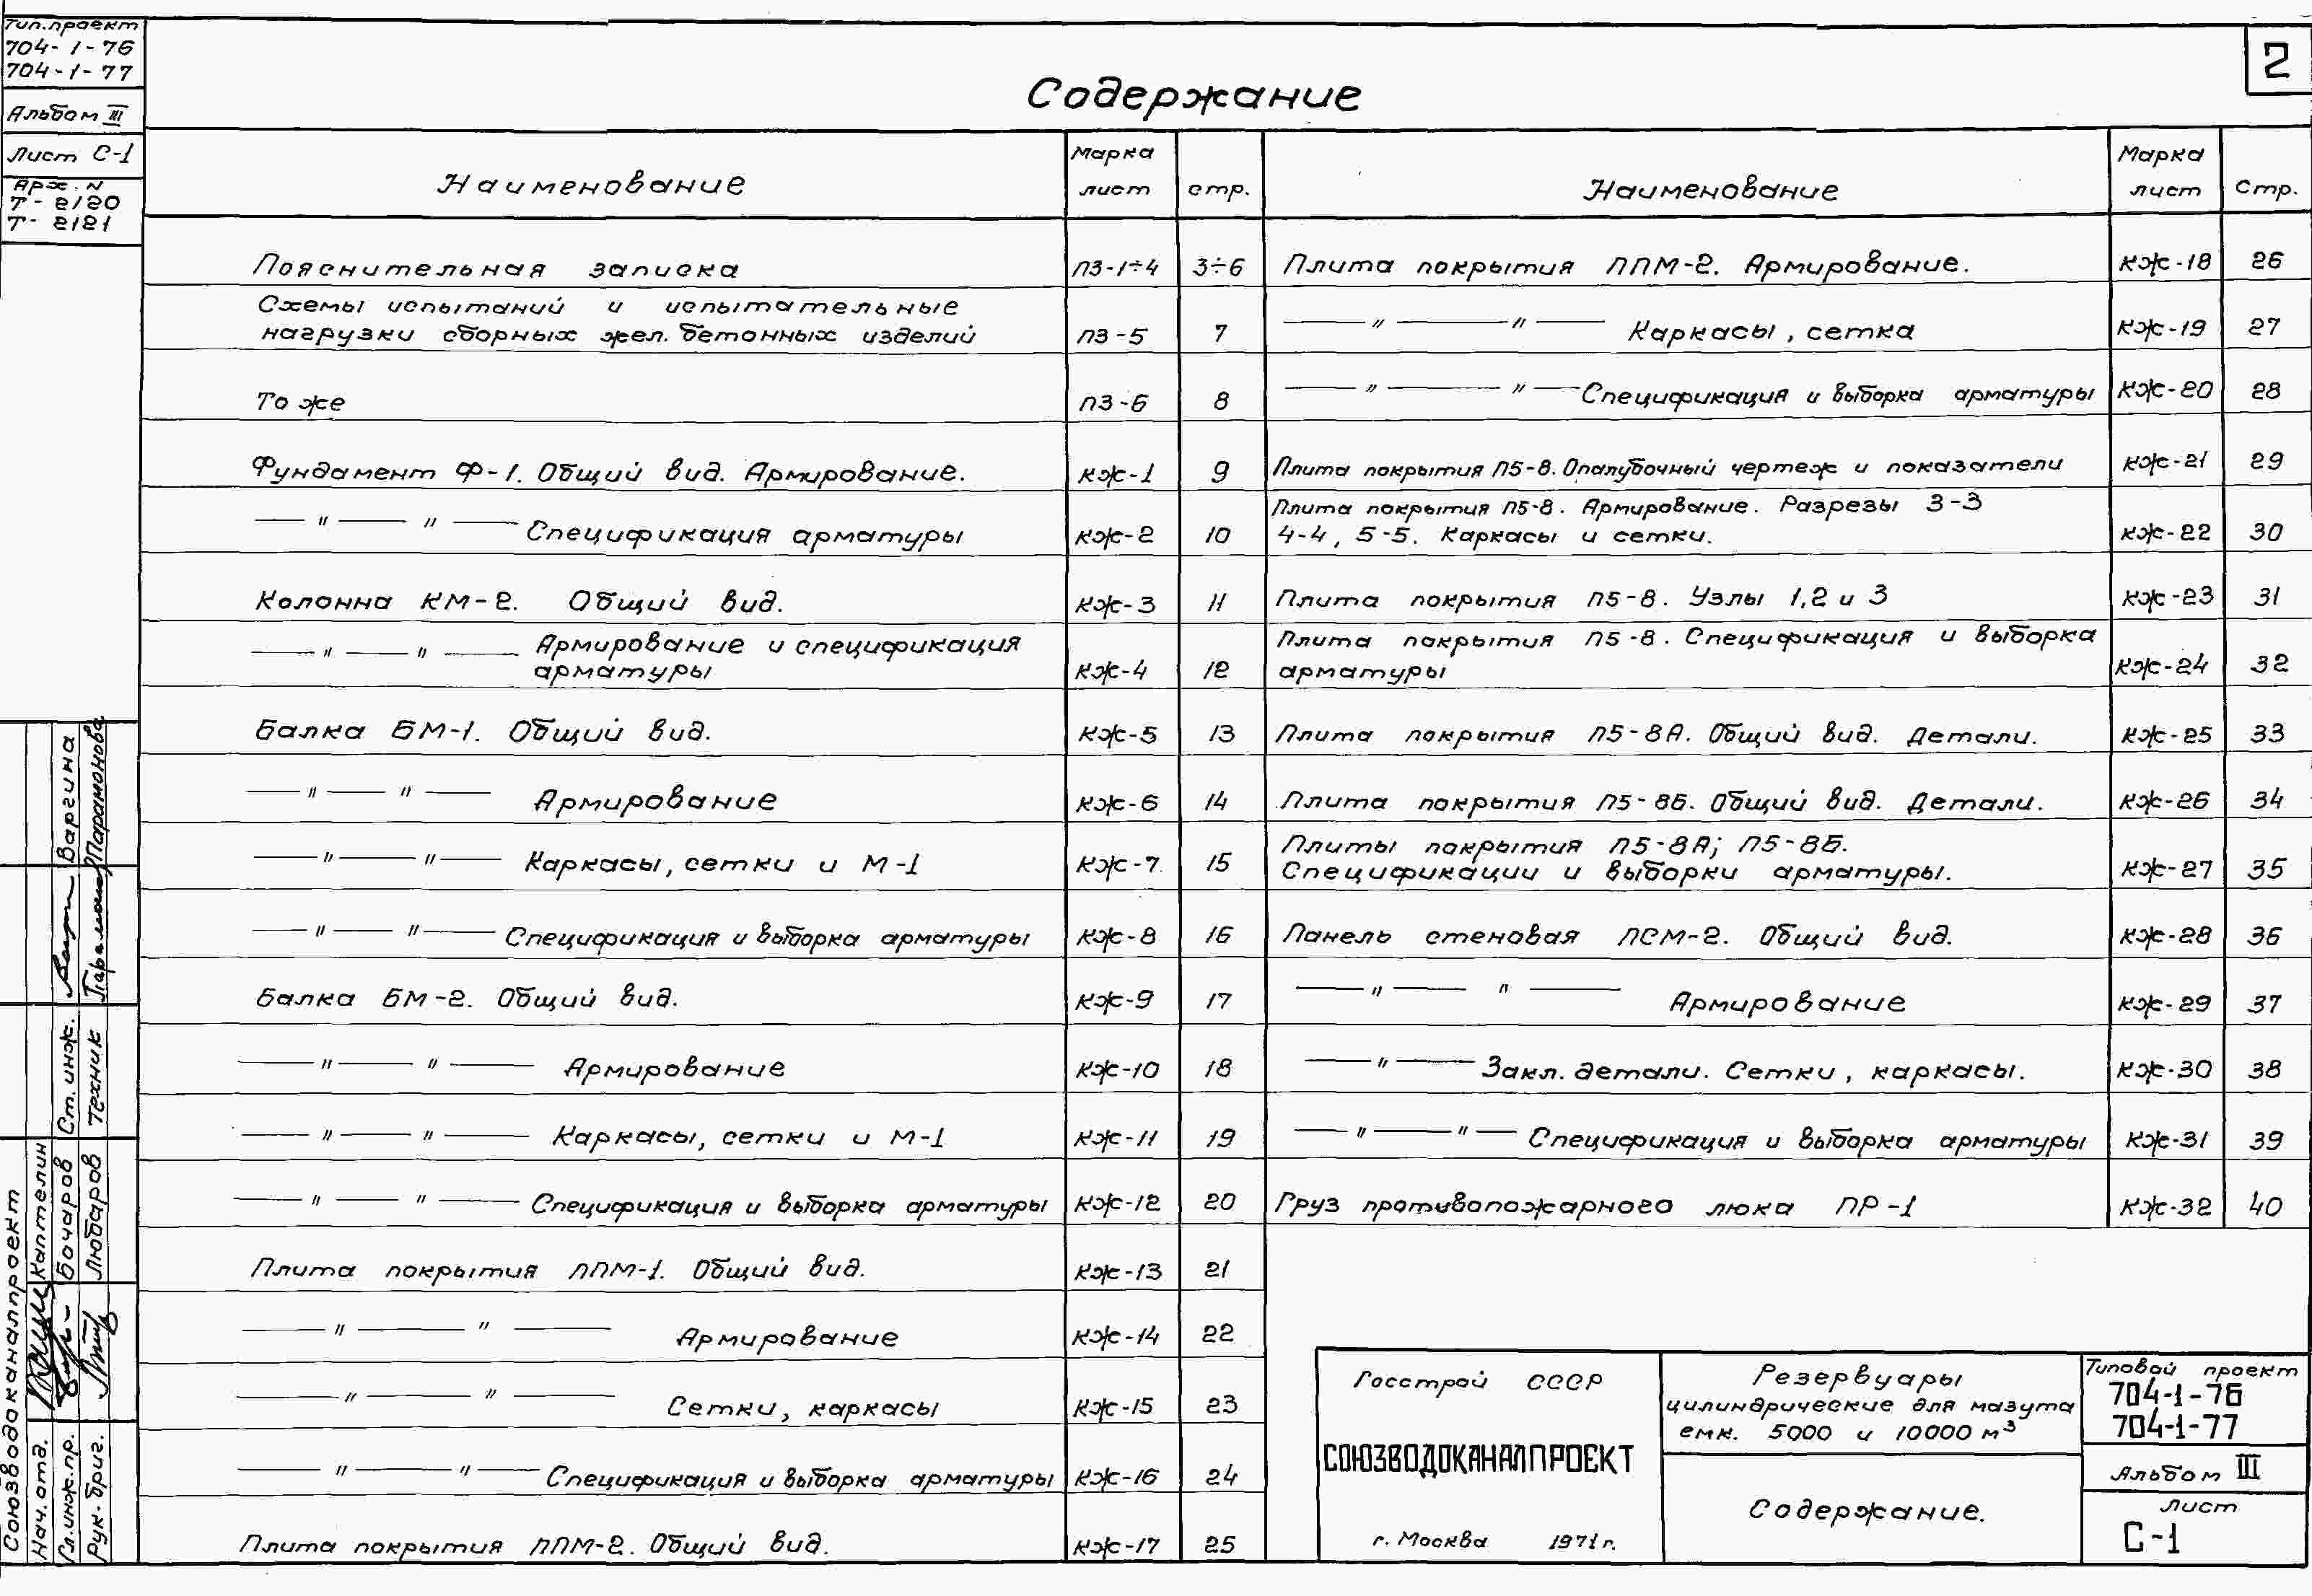 Тип.проект
704-1-76
704-1-77
Альбом III
Лист С-1
Арх. N
Т-2120
Т-2121
2
Содержание
Наименование Марка лист стр.
Пояснительная записка ПЗ-1÷4 3÷6
Схемы испытаний и испытательные
нагрузки сборных жел. бетонных изделий ПЗ-5 7
То же ПЗ-6 8
Фундамент Ф-1. Общий вид. Армирование. КЖ-1 9
— " — " — Спецификация арматуры КЖ-2 10
Колонна КМ-2. Общий вид. КЖ-3 11
— " — " — Армирование и спецификация
арматуры КЖ-4 12
Балка БМ-1. Общий вид. КЖ-5 13
— " — " — Армирование КЖ-6 14
— " — " — Каркасы, сетки и М-1 КЖ-7 15
— " — " — Спецификация и выборка арматуры КЖ-8 16
Балка БМ-2. Общий вид. КЖ-9 17
— " — " — Армирование КЖ-10 18
— " — " — Каркасы, сетки и М-1 КЖ-11 19
— " — " — Спецификация и выборка арматуры КЖ-12 20
Плита покрытия ППМ-1. Общий вид. КЖ-13 21
— " — " — Армирование КЖ-14 22
— " — " — Сетки, каркасы КЖ-15 23
— " — " — Спецификация и выборка арматуры КЖ-16 24
Плита покрытия ППМ-2. Общий вид. КЖ-17 25
Наименование Марка лист Стр.
Плита покрытия ППМ-2. Армирование. КЖ-18 26
— " — " — Каркасы, сетка КЖ-19 27
— " — " — Спецификация и выборка арматуры КЖ-20 28
Плита покрытия П5-8. Опалубочный чертеж и показатели КЖ-21 29
Плита покрытия П5-8. Армирование. Разрезы 3-3
4-4, 5-5. Каркасы и сетки. КЖ-22 30
Плита покрытия П5-8. Узлы 1,2 и 3 КЖ-23 31
Плита покрытия П5-8. Спецификация и выборка
арматуры КЖ-24 32
Плита покрытия П5-8А. Общий вид. Детали. КЖ-25 33
Плита покрытия П5-8Б. Общий вид. Детали. КЖ-26 34
Плиты покрытия П5-8А; П5-8Б.
Спецификации и выборки арматуры. КЖ-27 35
Панель стеновая ПСМ-2. Общий вид. КЖ-28 36
— " — " — Армирование КЖ-29 37
— " — Закл. детали. Сетки, каркасы. КЖ-30 38
— " — " — Спецификация и выборка арматуры КЖ-31 39
Груз противопожарного люка ПР-1 КЖ-32 40
Госстрой СССР
СОЮЗВОДОКАНАЛПРОЕКТ
г. Москва 1971г.
Резервуары
цилиндрические для мазута
емк. 5000 и 10000 м³
Содержание.
Типовой проект
704-1-76
704-1-77
Альбом III
Лист
С-1
Союзводоканалпроект
Нач. отд. Каптелин
Гл. инж. пр. Бочаров
Рук. бриг. Любаров
Ст. инж. Варгина
Техник Парамонова